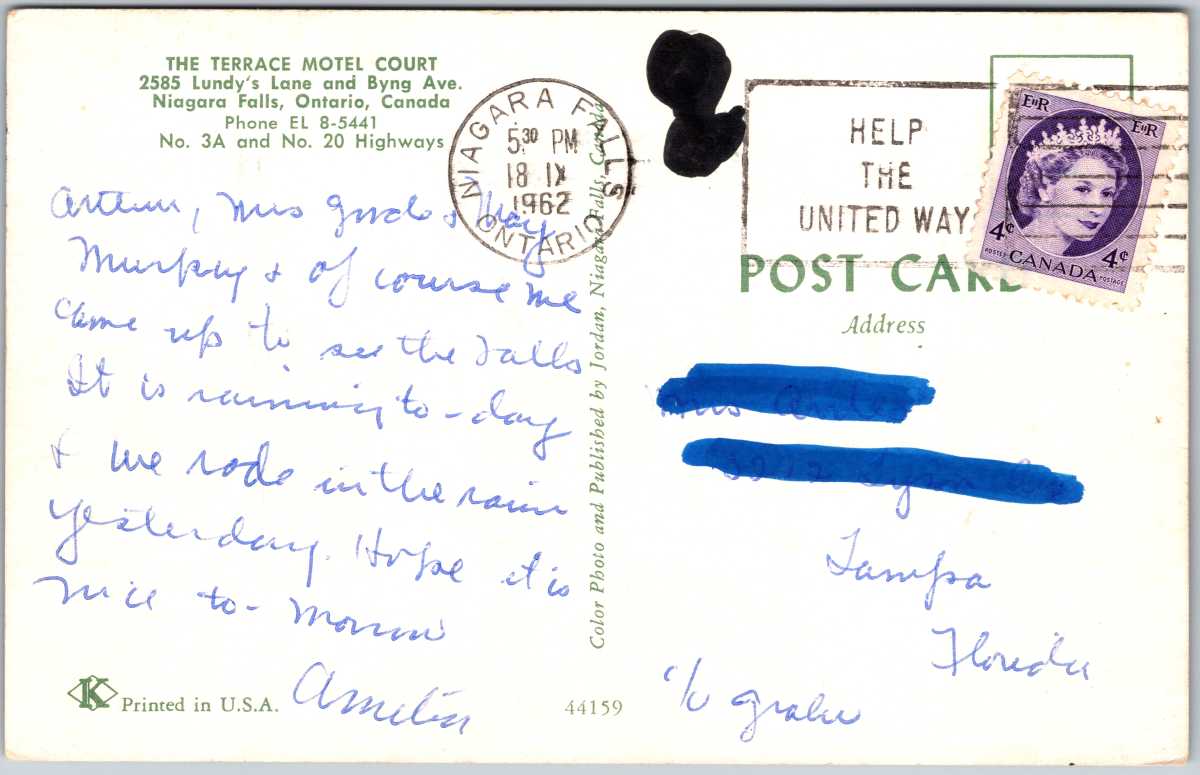 THE TERRACE MOTEL COURT
2585 Lundy's Lane and Byng Ave.
Niagara Falls, Ontario, Canada
Phone EL 8-5441
No. 3A and No. 20 Highways
NIAGARA FALLS
5 30 PM
18 IX
1962
ONTARIO
HELP
THE
UNITED WAY
EIIR
EIIR
4¢
4¢
POSTES CANADA POSTAGE
POST CARD
Address
Arthur, Mrs & May
Murphy & of course me
came up to see the Falls
It is raining to-day
& we rode in the rain
yesterday. Hope it is
nice to-morrow
Color Photo and Published by Jordan, Niagara Falls, Canada
Mrs
Tampa
Florida
c/o
K
Printed in U.S.A.
44159